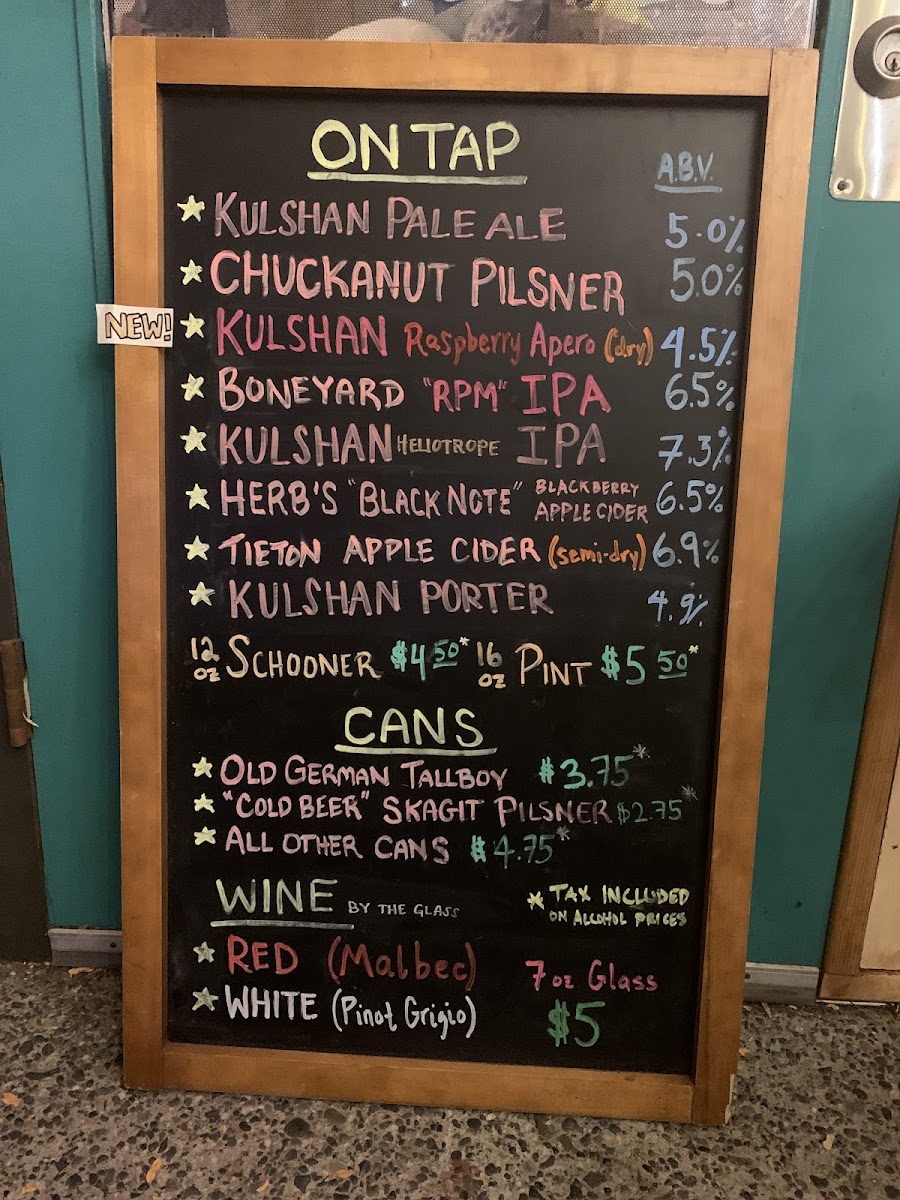 ON TAP
A.B.V.
KULSHAN PALE ALE 5.0%
CHUCKANUT PILSNER 5.0%
NEW! KULSHAN Raspberry Apero (dry) 4.5%
BONEYARD "RPM" IPA 6.5%
KULSHAN HELIOTROPE IPA 7.3%
HERB'S "BLACK NOTE" BLACKBERRY APPLE CIDER 6.5%
TIETON APPLE CIDER (semi-dry) 6.9%
KULSHAN PORTER 4.9%
12 oz SCHOONER $4 50* 16 oz PINT $5 50*
CANS
OLD GERMAN TALLBOY $3.75*
"COLD BEER" SKAGIT PILSNER $2.75*
ALL OTHER CANS $4.75*
WINE BY THE GLASS
* TAX INCLUDED
ON ALCOHOL PRICES
RED (Malbec)
WHITE (Pinot Grigio)
7 oz Glass
$5